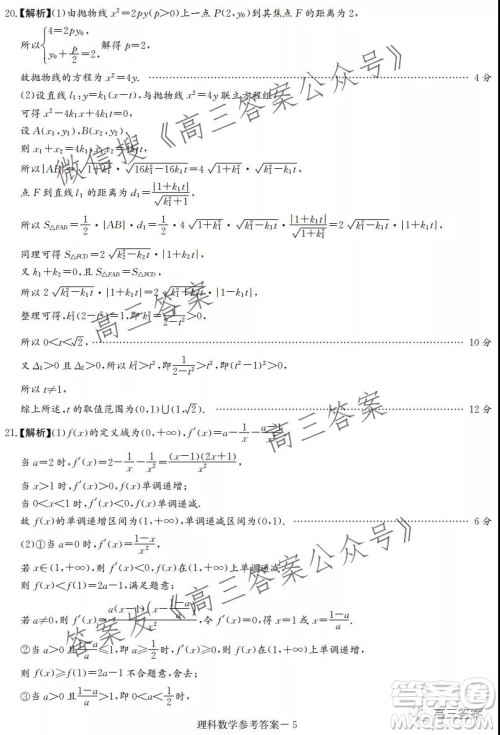 20.【解析】(1)由抛物线 x²=2py(p>0)上一点 P(2,y₀)到其焦点 F 的距离为 2,
所以{4=2py₀, y₀+p/2=2, 解得 p=2.
故抛物线的方程为 x²=4y. 4 分
(2)设直线 l₁:y=k₁(x-t),与抛物线 x²=4y 联立方程组
x²-4k₁x+4k₁t=0,
设 A(x₁,y₁),B(x₂,y₂),
则 x₁+x₂=4k₁,x₁x₂=4k₁t,
所以|AB|=√(1+k₁²)·√(16k₁²-16k₁t)=4√(1+k₁²)·√(k₁²-k₁t),
点 F 到直线 l₁ 的距离为 d₁=|1+k₁t|/√(k₁²+1),
所以 S△FAB=1/2·|AB|·d₁=1/2·4√(1+k₁²)·√(k₁²-k₁t)·|1+k₁t|/√(k₁²+1)=2√(k₁²-k₁t)·|1+k₁t|,
同理可得 S△FCD=2√(k₂²-k₂t)·|1+k₂t|,
又 k₁+k₂=0,且 S△FAB=S△FCD,
所以 2√(k₁²-k₁t)·|1+k₁t|=2√(k₁²+k₁t)·|1-k₁t|,
整理可得 k₁²(2-t²)=1,即 k₁²=1/(2-t²)>0,
所以 0<t<√2, 10 分
又 Δ₁>0 且 Δ₂>0,所以 k₁²>t²,即 1/(2-t²)>t²,即(t²-1)²>0,
所以 t≠1,
综上所述,t 的取值范围为(0,1)∪(1,√2). 12 分
21.【解析】(1)f(x)的定义域为(0,+∞),f′(x)=a-1/x-(1-a)/x²,
当 a=2 时,f′(x)=2-1/x-1/x²=(x-1)(2x+1)/x²,
当 x>1 时,f′(x)>0,f(x)单调递增;
当 0<x<1 时,f′(x)<0,f(x)单调递减.
故 f(x)的单调递增区间为(1,+∞),单调递减区间为(0,1). 6 分
(2)①当 a=0 时,f′(x)=(1-x)/x²,
若 x∈(1,+∞),则 f′(x)<0,f(x)单调递减,
所以 f(x)<f(1)=2a-1,满足题意;
若 a≠0,则 f′(x)=a(x-1)(x-(1-a)/a)/x²,令 f′(x)=0,得 x=1 或 x=(1-a)/a,
②当 a>0 且 (1-a)/a≤1,即 a≥1/2 时,f(x)在(1,+∞)上单调递增,
所以 f(x)≥f(1)=2a-1 不合题意,舍去;
③当 a>0 且 (1-a)/a>1,即 0<a<1/2 时,
理科数学参考答案-5
微信搜《高三答案公众号》
高三答案
高三答案
答案发《高三答案公众号》
高三答案
答案圈
MXQE.COM